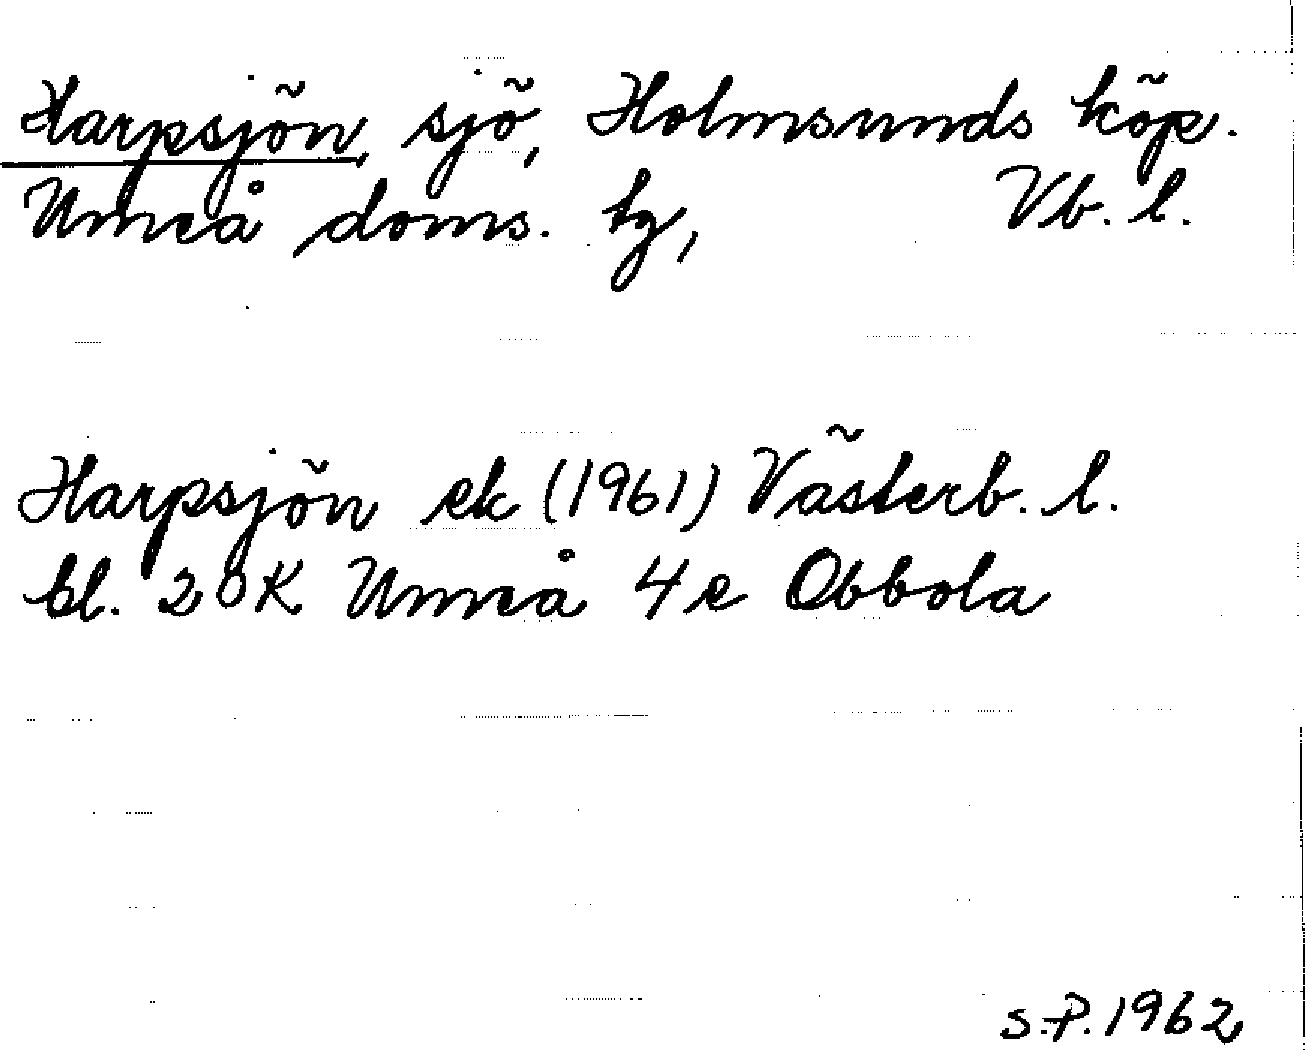 Harpsjön, sjö, Holmsunds köp.
Umeå doms. tg, Vb. l.
Harpsjön ek (1961) Västerb. l.
bl. 20K Umeå 4e Obbola
S.P. 1962